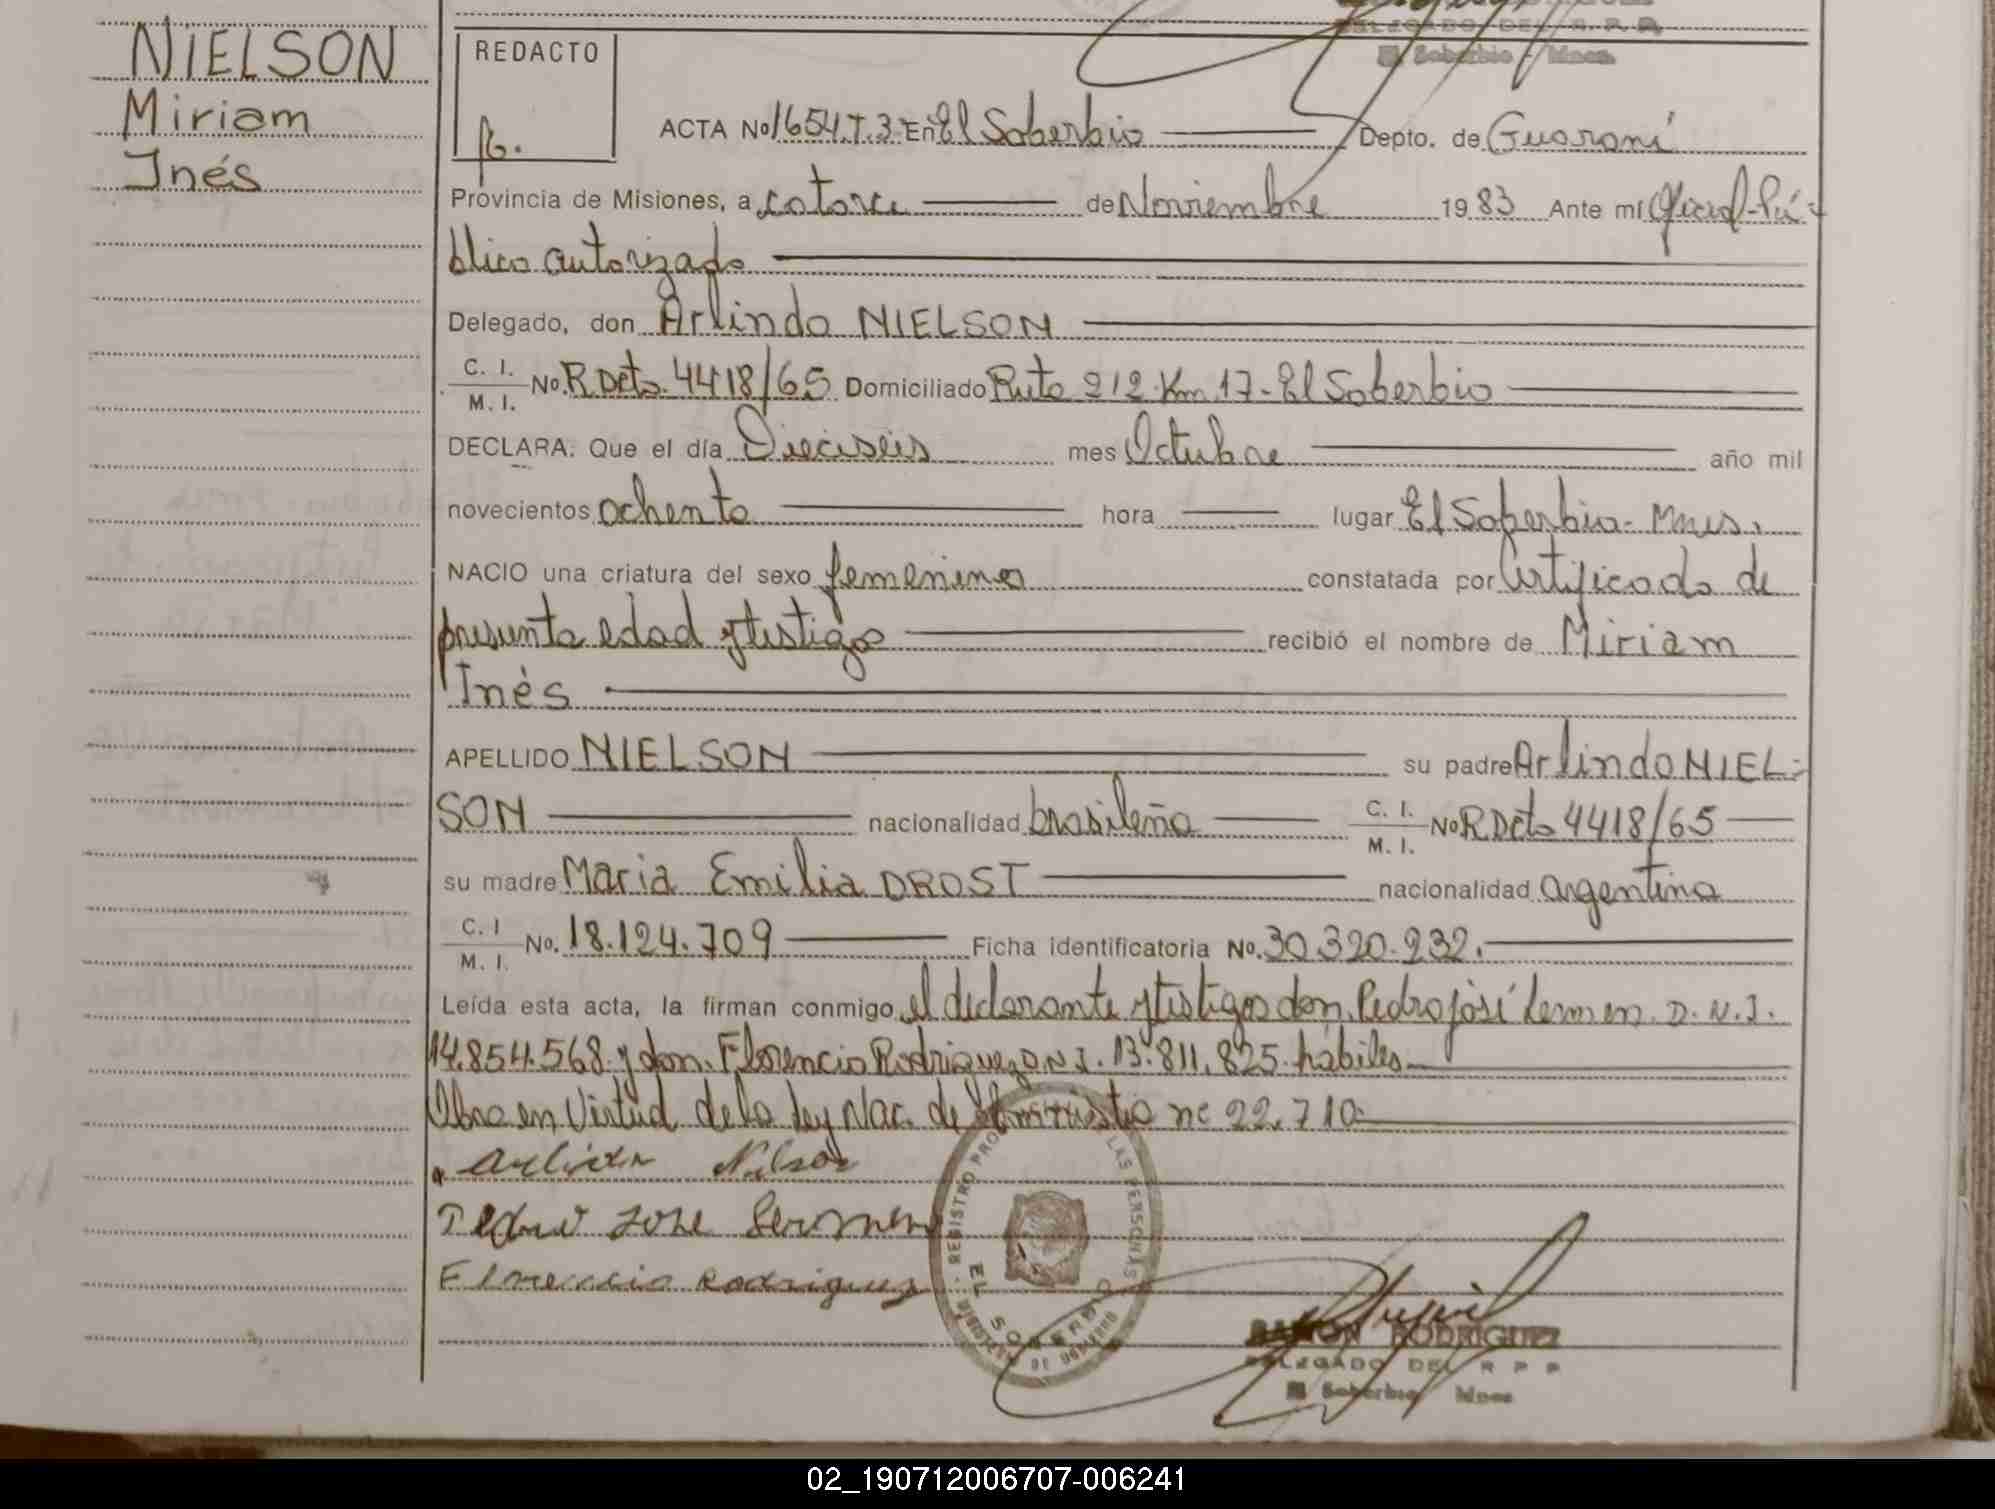 NIELSON
Miriam
Inés
DELEGADO DEL R. P. P.
El Soberbio - Mnes.
REDACTO
ACTA No 1654.T.3. En El Soberbio Depto. de Guaraní
Provincia de Misiones, a catorce de Noviembre 1983 Ante mí Oficial Pú-
blico autorizado
Delegado, don Arlindo NIELSON
C. I.
M. I. No. R. Dcto. 4418/65 Domiciliado Ruta 212 Km 17 - El Soberbio
DECLARA: Que el día Dieciséis mes Octubre año mil
novecientos ochenta hora lugar El Soberbio - Mnes.
NACIO una criatura del sexo femenino constatada por Certificado de
presunta edad y testigos recibió el nombre de Miriam
Inés
APELLIDO NIELSON su padre Arlindo NIEL-
SON nacionalidad brasileña C. I.
M. I. No R Dcto 4418/65
su madre Maria Emilia DROST nacionalidad argentina
C. I
M. I. No. 18.124.709 Ficha identificatoria No. 30.320.232.
Leída esta acta, la firman conmigo el declarante y testigos don Pedro José Lermen D.N.I.
14.854.568 y don Florencio Rodriguez D.N.I. 13.811.825 hábiles
Obra en Virtud de la Ley Nac. de Amnistia nº 22.710
Arlindo Nilson
Pedro Jose Lermen
Florencio Rodriguez
REGISTRO PROV DE LAS PERSONAS
EL SOBERBIO
RAMON RODRIGUEZ
DELEGADO DEL R P P
El Soberbio Mnes
02_190712006707-006241